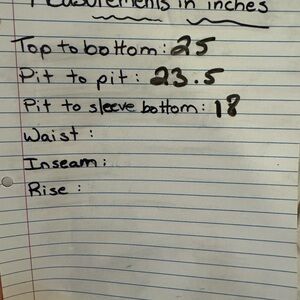 Measurements in inches
Top to bottom: 25
Pit to pit: 23.5
Pit to sleeve bottom: 18
Waist :
Inseam :
Rise :